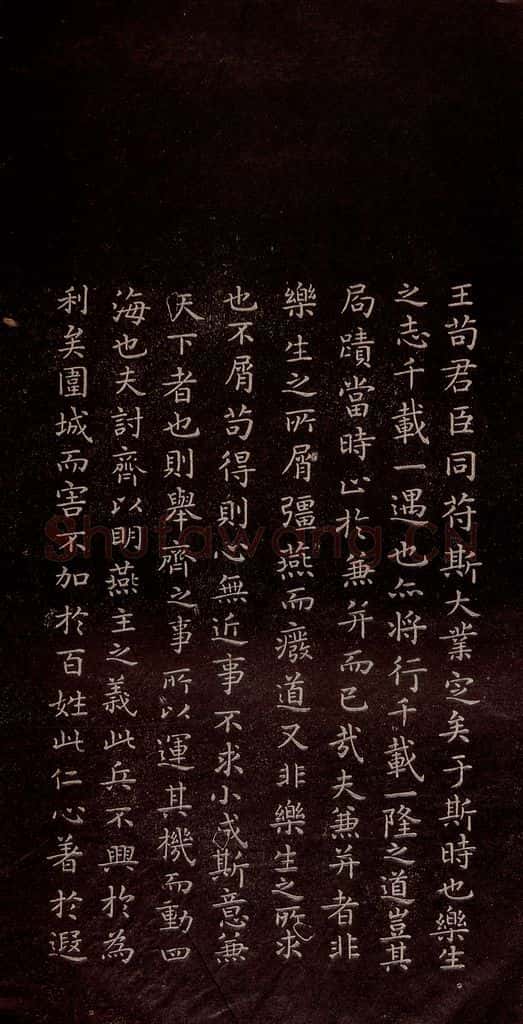 王苟君臣同苻斯大業定矣于斯時也樂生
之志千載一遇也亦將行千載一隆之道豈其
局蹟當時止於兼并而已哉夫兼并者非
樂生之所屑彊燕而癈道又非樂生之所求
也不屑苟得則心無近事不求小成斯意兼
天下者也則舉齊之事所以運其機而動四
海也夫討齊以明燕主之義此兵不興於為
利矣圍城而害不加於百姓此仁心著於遐
Shufawang.CN